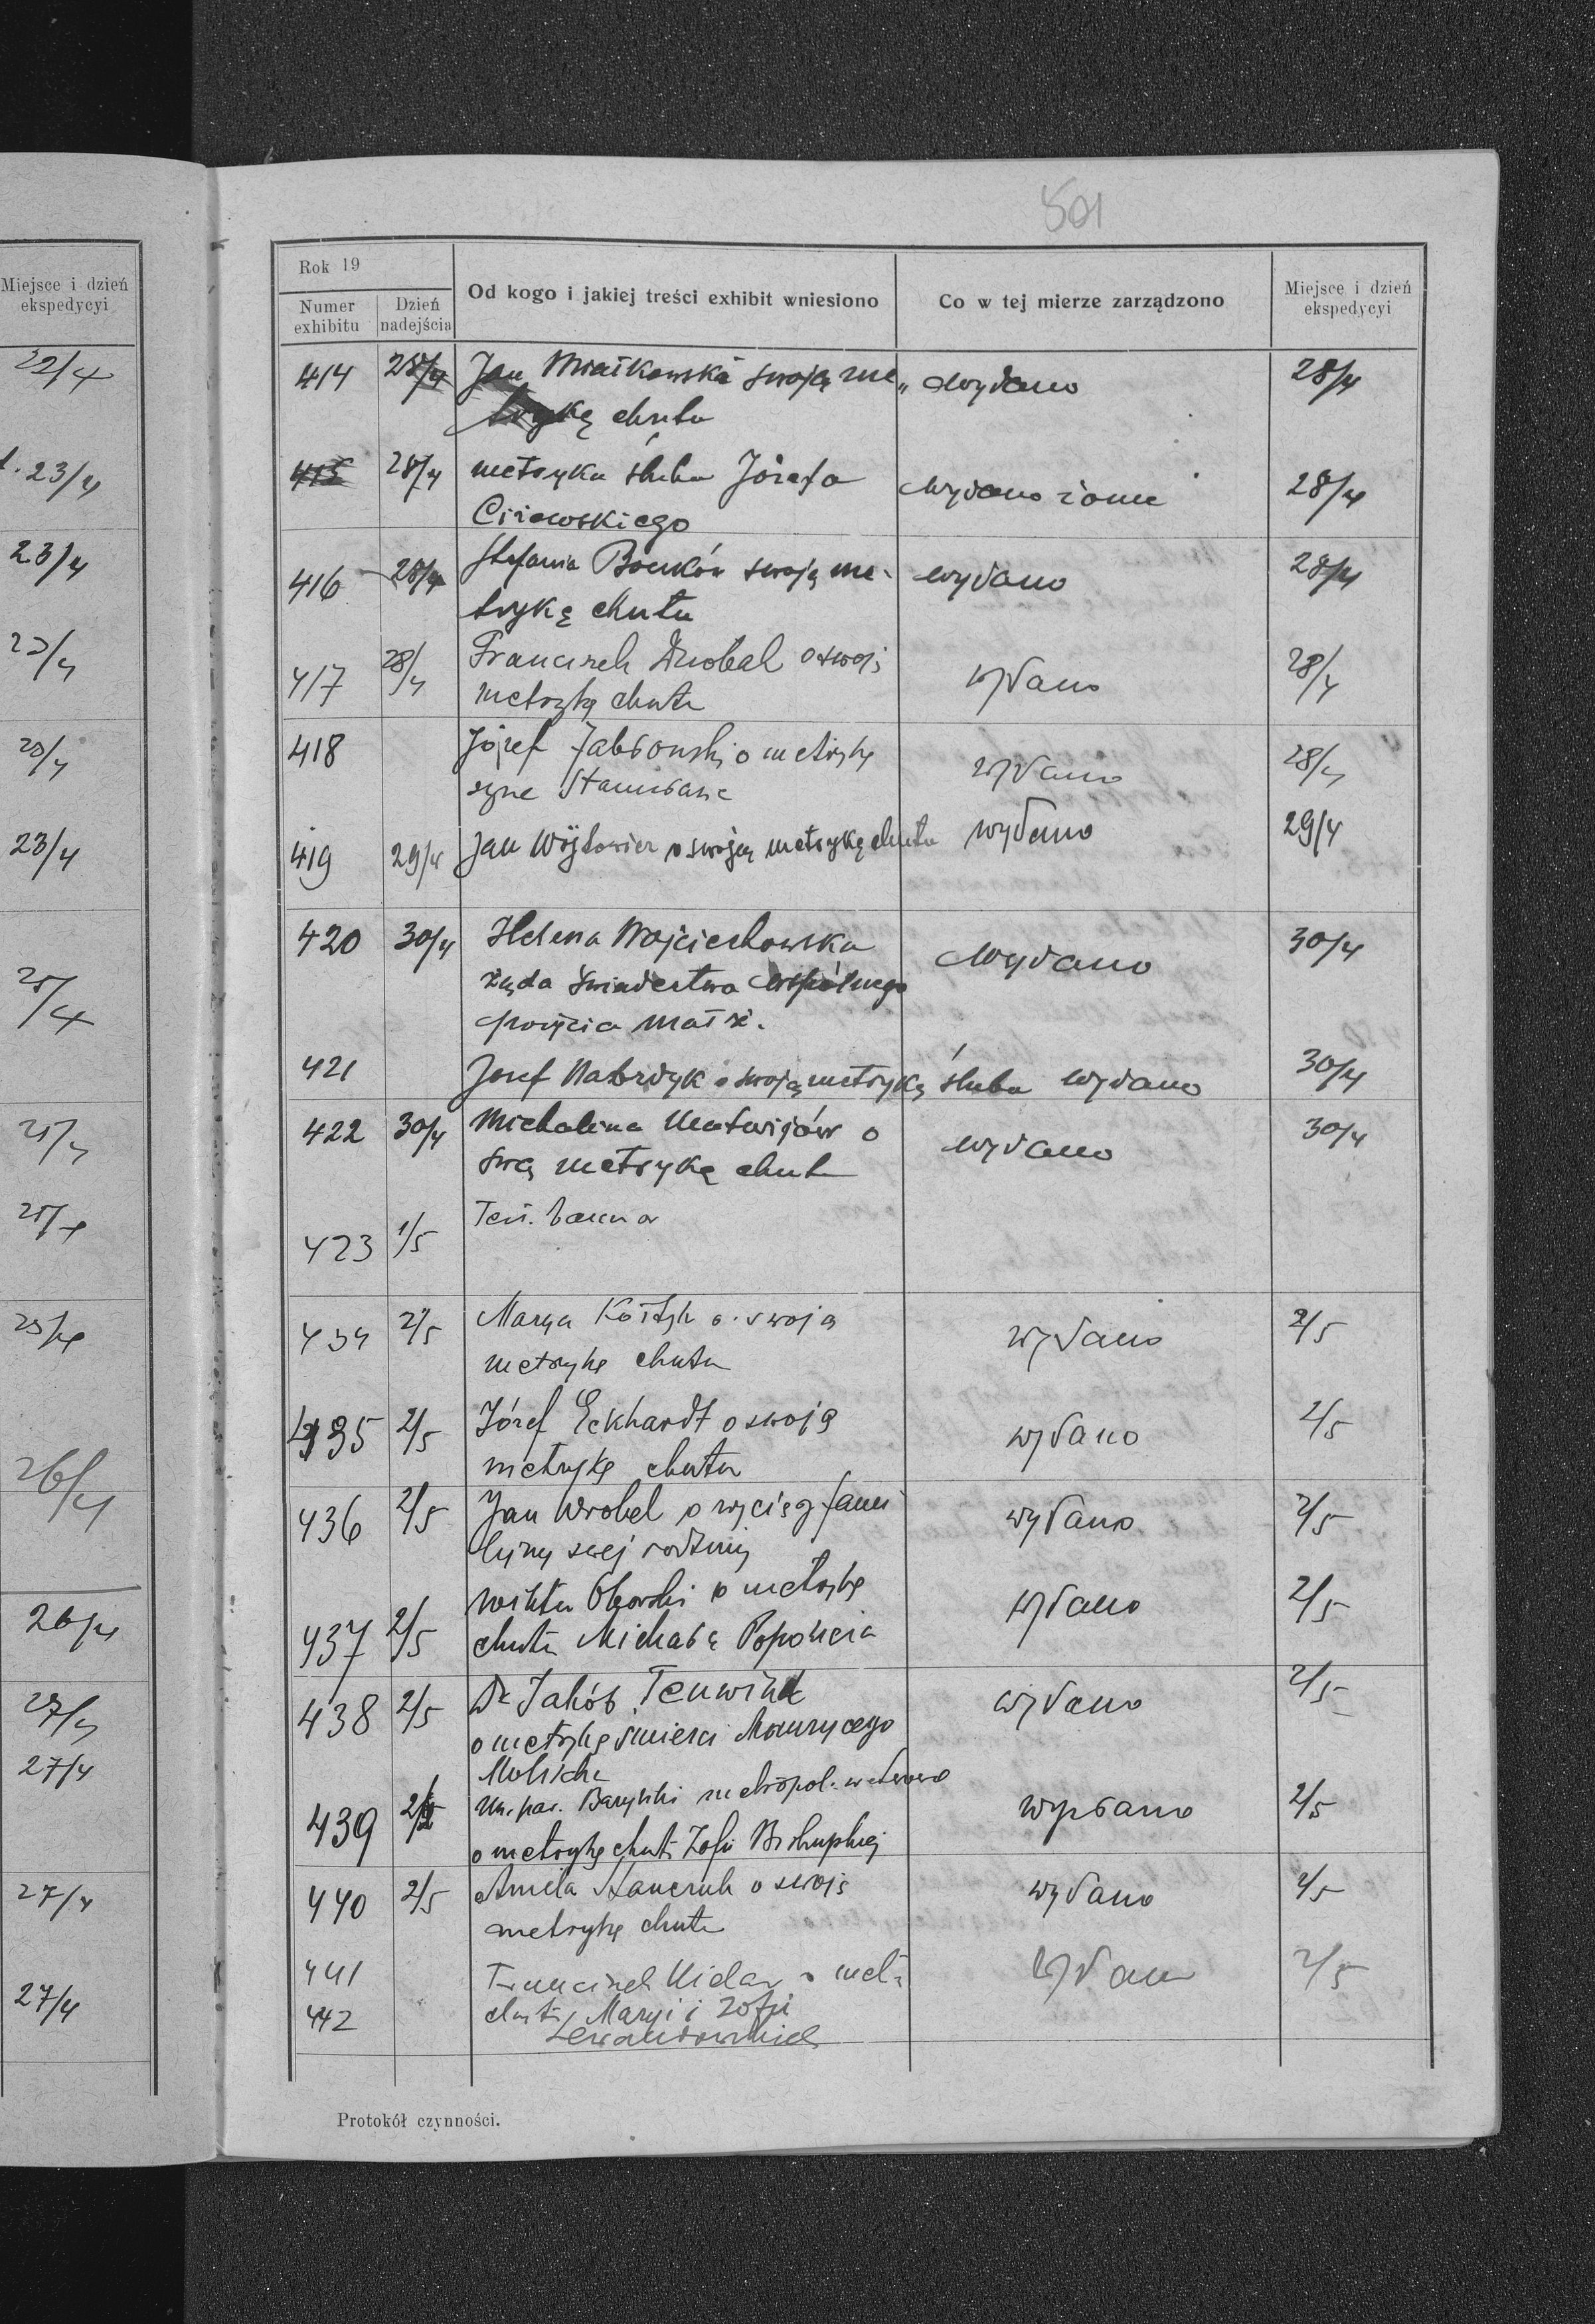 Miejsce i dzień
ekspedycyi
22/4
23/4
23/4
23/4
23/4
25/4
25/4
25/4
25/4
26/4
26/4
27/4
27/4
27/4
27/4
501
Rok 19
Numer
exhibitu
Dzień
nadejścia
Od kogo i jakiej treści exhibit wniesiono
Co w tej mierze zarządzono
Miejsce i dzień
ekspedycyi
414 28/4 Jan swoją me„ wydano 28/4
trykę chrztu
415 28/4 metryka ślubu Józefa wydano żonie 28/4
416 28/4 Stefania swoją me- wydano 28/4
trykę chrztu
417 28/4 Franciszek o swoją wydano 28/4
metrykę chrztu
418 Józef Jabłoński o metrykę wydano 28/4
syna Stanisława
419 29/4 Jan Wójtowicz o swoją metrykę chrztu wydano 29/4
420 30/4 Helena Wojciechowska wydano 30/4
żąda świadectwa wspólnego
pożycia małż.
421 Józef o swoją metrykę ślubu wydano 30/4
422 30/4 Michalina Matwijów o wydano 30/4
swą metrykę chrztu
423 1/5
434 2/5 Marya o swoją wydano 2/5
metrykę chrztu
435 2/5 Józef Eckhardt o swoją wydano 2/5
metrykę chrztu
436 2/5 Jan Wrobel o wyciąg fami wydano 2/5
lijny swej rodziny
437 2/5 o metrykę wydano 2/5
chrztu Michała
438 2/5 Dr Jakób wydano 2/5
o metrykę śmierci Maurycego
439 2/5 metropol. wydano 2/5
o metrykę chrztu Zofii Biskupskiej
440 2/5 Aniela o swoją wydano 2/5
metrykę chrztu
441 Franciszek o met. wydano 2/5
442 chrztu Maryi i Zofii
Lewandowskich
Protokół czynności.